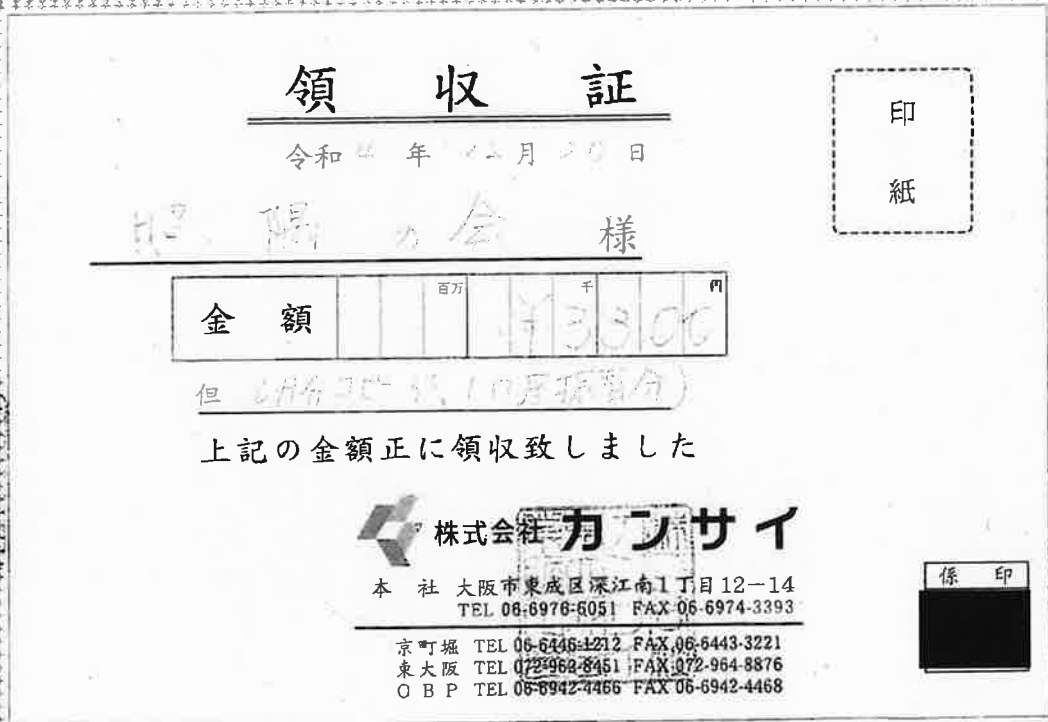 領収証
印紙
令和4年12月20日
陽の会 様
金額 百万 千 円 ¥3300
但
上記の金額正に領収致しました
株式会社カンサイ
本社 大阪市東成区深江南1丁目12-14
TEL 06-6976-6051 FAX 06-6974-3393
京町堀 TEL 06-6446-1212 FAX 06-6443-3221
東大阪 TEL 072-963-8451 FAX 072-964-8876
OBP TEL 06-6942-4466 FAX 06-6942-4468
係印